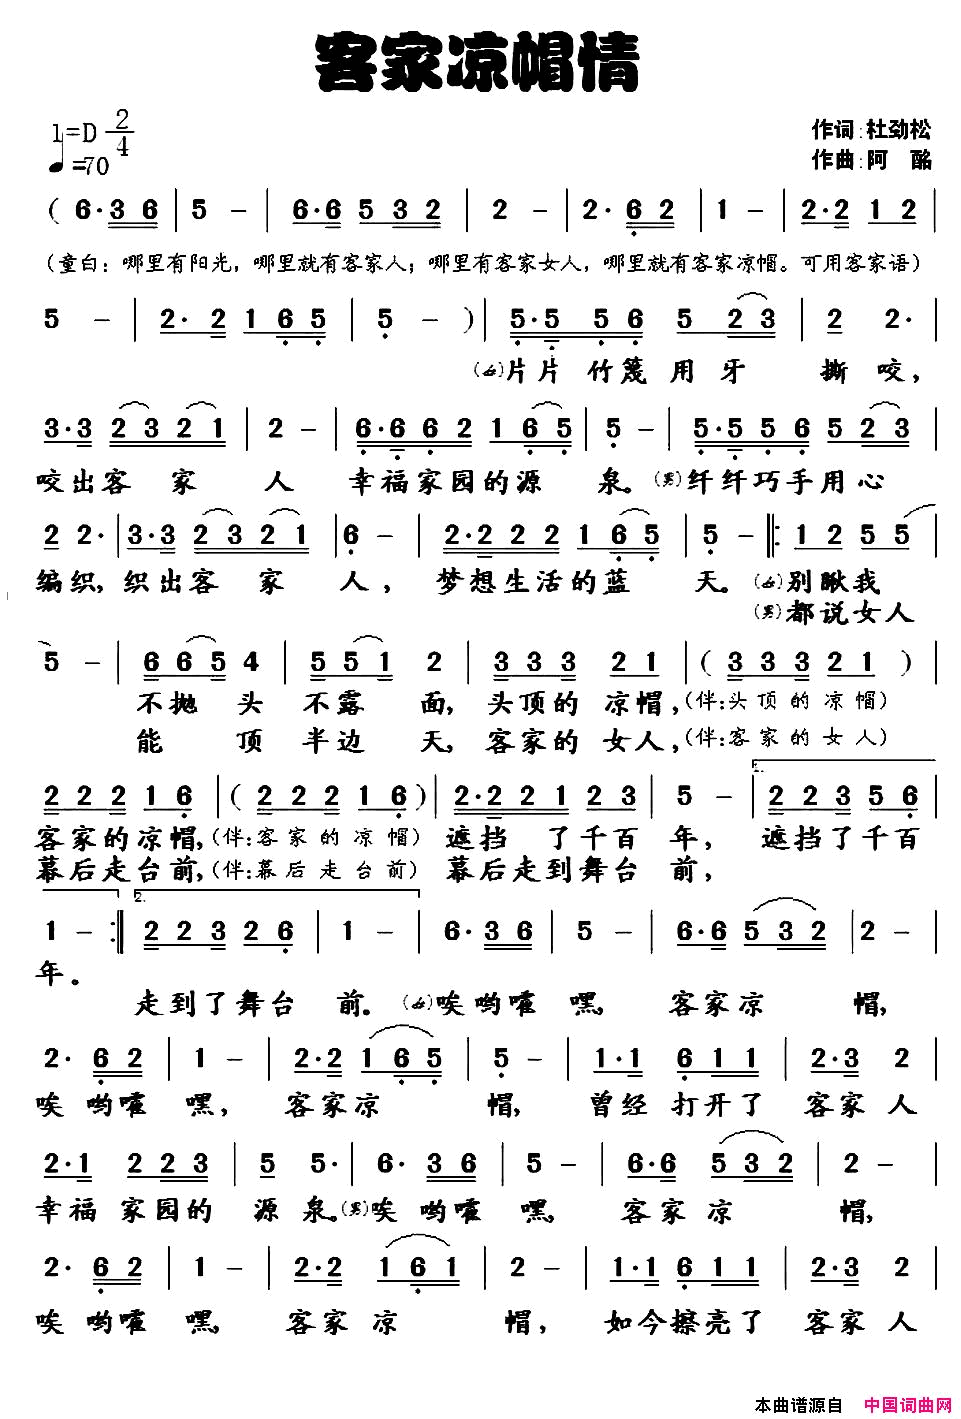 客家凉帽情
1=D 2/4
♩=70
作词:杜劲松
作曲:阿 酩
( 6·3 6 | 5 - | 6·6 5 3 2 | 2 - | 2· 6 2 | 1 - | 2·2 1 2 |
(童白：哪里有阳光，哪里就有客家人；哪里有客家女人，哪里就有客家凉帽。可用客家语)
5 - | 2· 2 1 6 5 | 5 - ) | 5·5 5 6 5 2 3 | 2 2· |
(女)片片竹篾用牙 撕咬，
3·3 2 3 2 1 | 2 - | 6·6 6 2 1 6 5 | 5 - | 5·5 5 6 5 2 3 |
咬出客 家 人 幸福家园的源 泉。(男)纤纤巧手用心
2 2· | 3·3 2 3 2 1 | 6 - | 2·2 2 2 1 6 5 | 5 - |: 1 2 5 5 |
编织，织出客 家 人， 梦想生活的蓝 天。(女)别瞅我
(男)都说女人
5 - | 6 6 5 4 | 5 5 1 2 | 3 3 3 2 1 | ( 3 3 3 2 1 ) |
不抛 头 不露 面，头顶的 凉帽，(伴:头顶的凉帽)
能 顶 半边 天，客家的 女人，(伴:客家的女人)
2 2 2 1 6 | ( 2 2 2 1 6 ) | 2·2 2 1 2 3 | 5 - | 1. 2 2 3 5 6 |
客家的凉帽，(伴:客家的凉帽) 遮挡 了千百 年，遮挡了千百
幕后走台前，(伴:幕后走台前) 幕后走到舞台 前，
1 - :| 2. 2 2 3 2 6 | 1 - | 6· 3 6 | 5 - | 6·6 5 3 2 | 2 - |
年。
走到了舞台 前。(女)唉哟嚯 嘿，客家凉 帽，
2· 6 2 | 1 - | 2·2 1 6 5 | 5 - | 1·1 6 1 1 | 2·3 2 |
唉 哟嚯 嘿， 客家凉 帽， 曾经打开了 客家人
2·1 2 2 3 | 5 5· | 6· 3 6 | 5 - | 6·6 5 3 2 | 2 - |
幸福 家园的 源 泉。(男)唉 哟嚯 嘿， 客家 凉 帽，
2· 6 2 | 1 - | 2·2 1 6 1 | 2 - | 1·1 6 1 1 | 2·3 2 |
唉 哟嚯 嘿， 客家 凉 帽， 如今擦亮了 客家人
本曲谱源自 中国词曲网